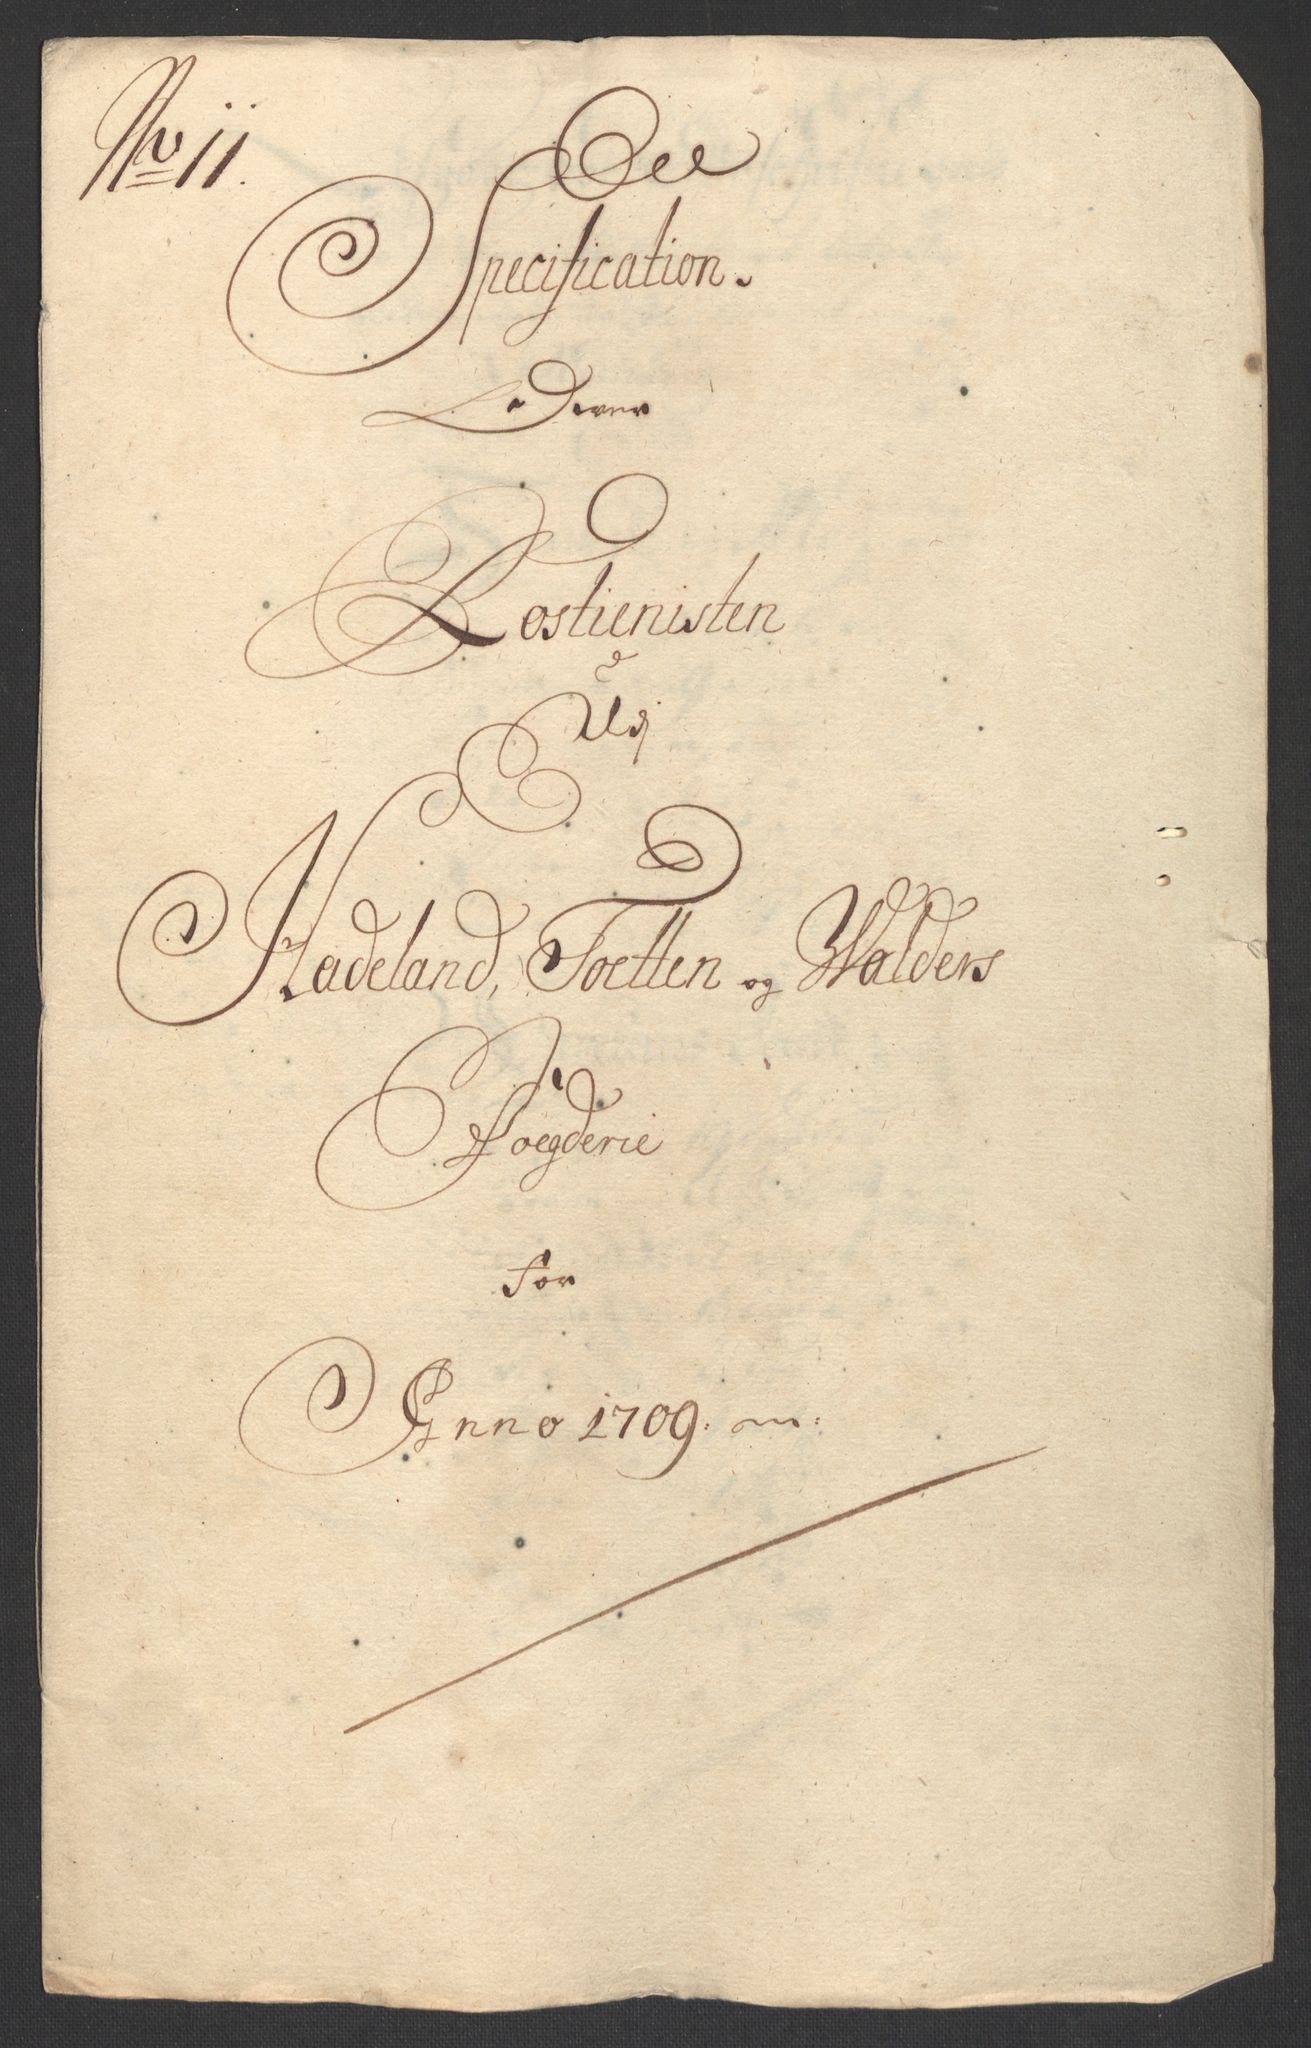 No 11.
Specification.
Over
Rostienisten
Udj
Hadeland, Toetten og Walders
Foegderie
for
Anno 1709.